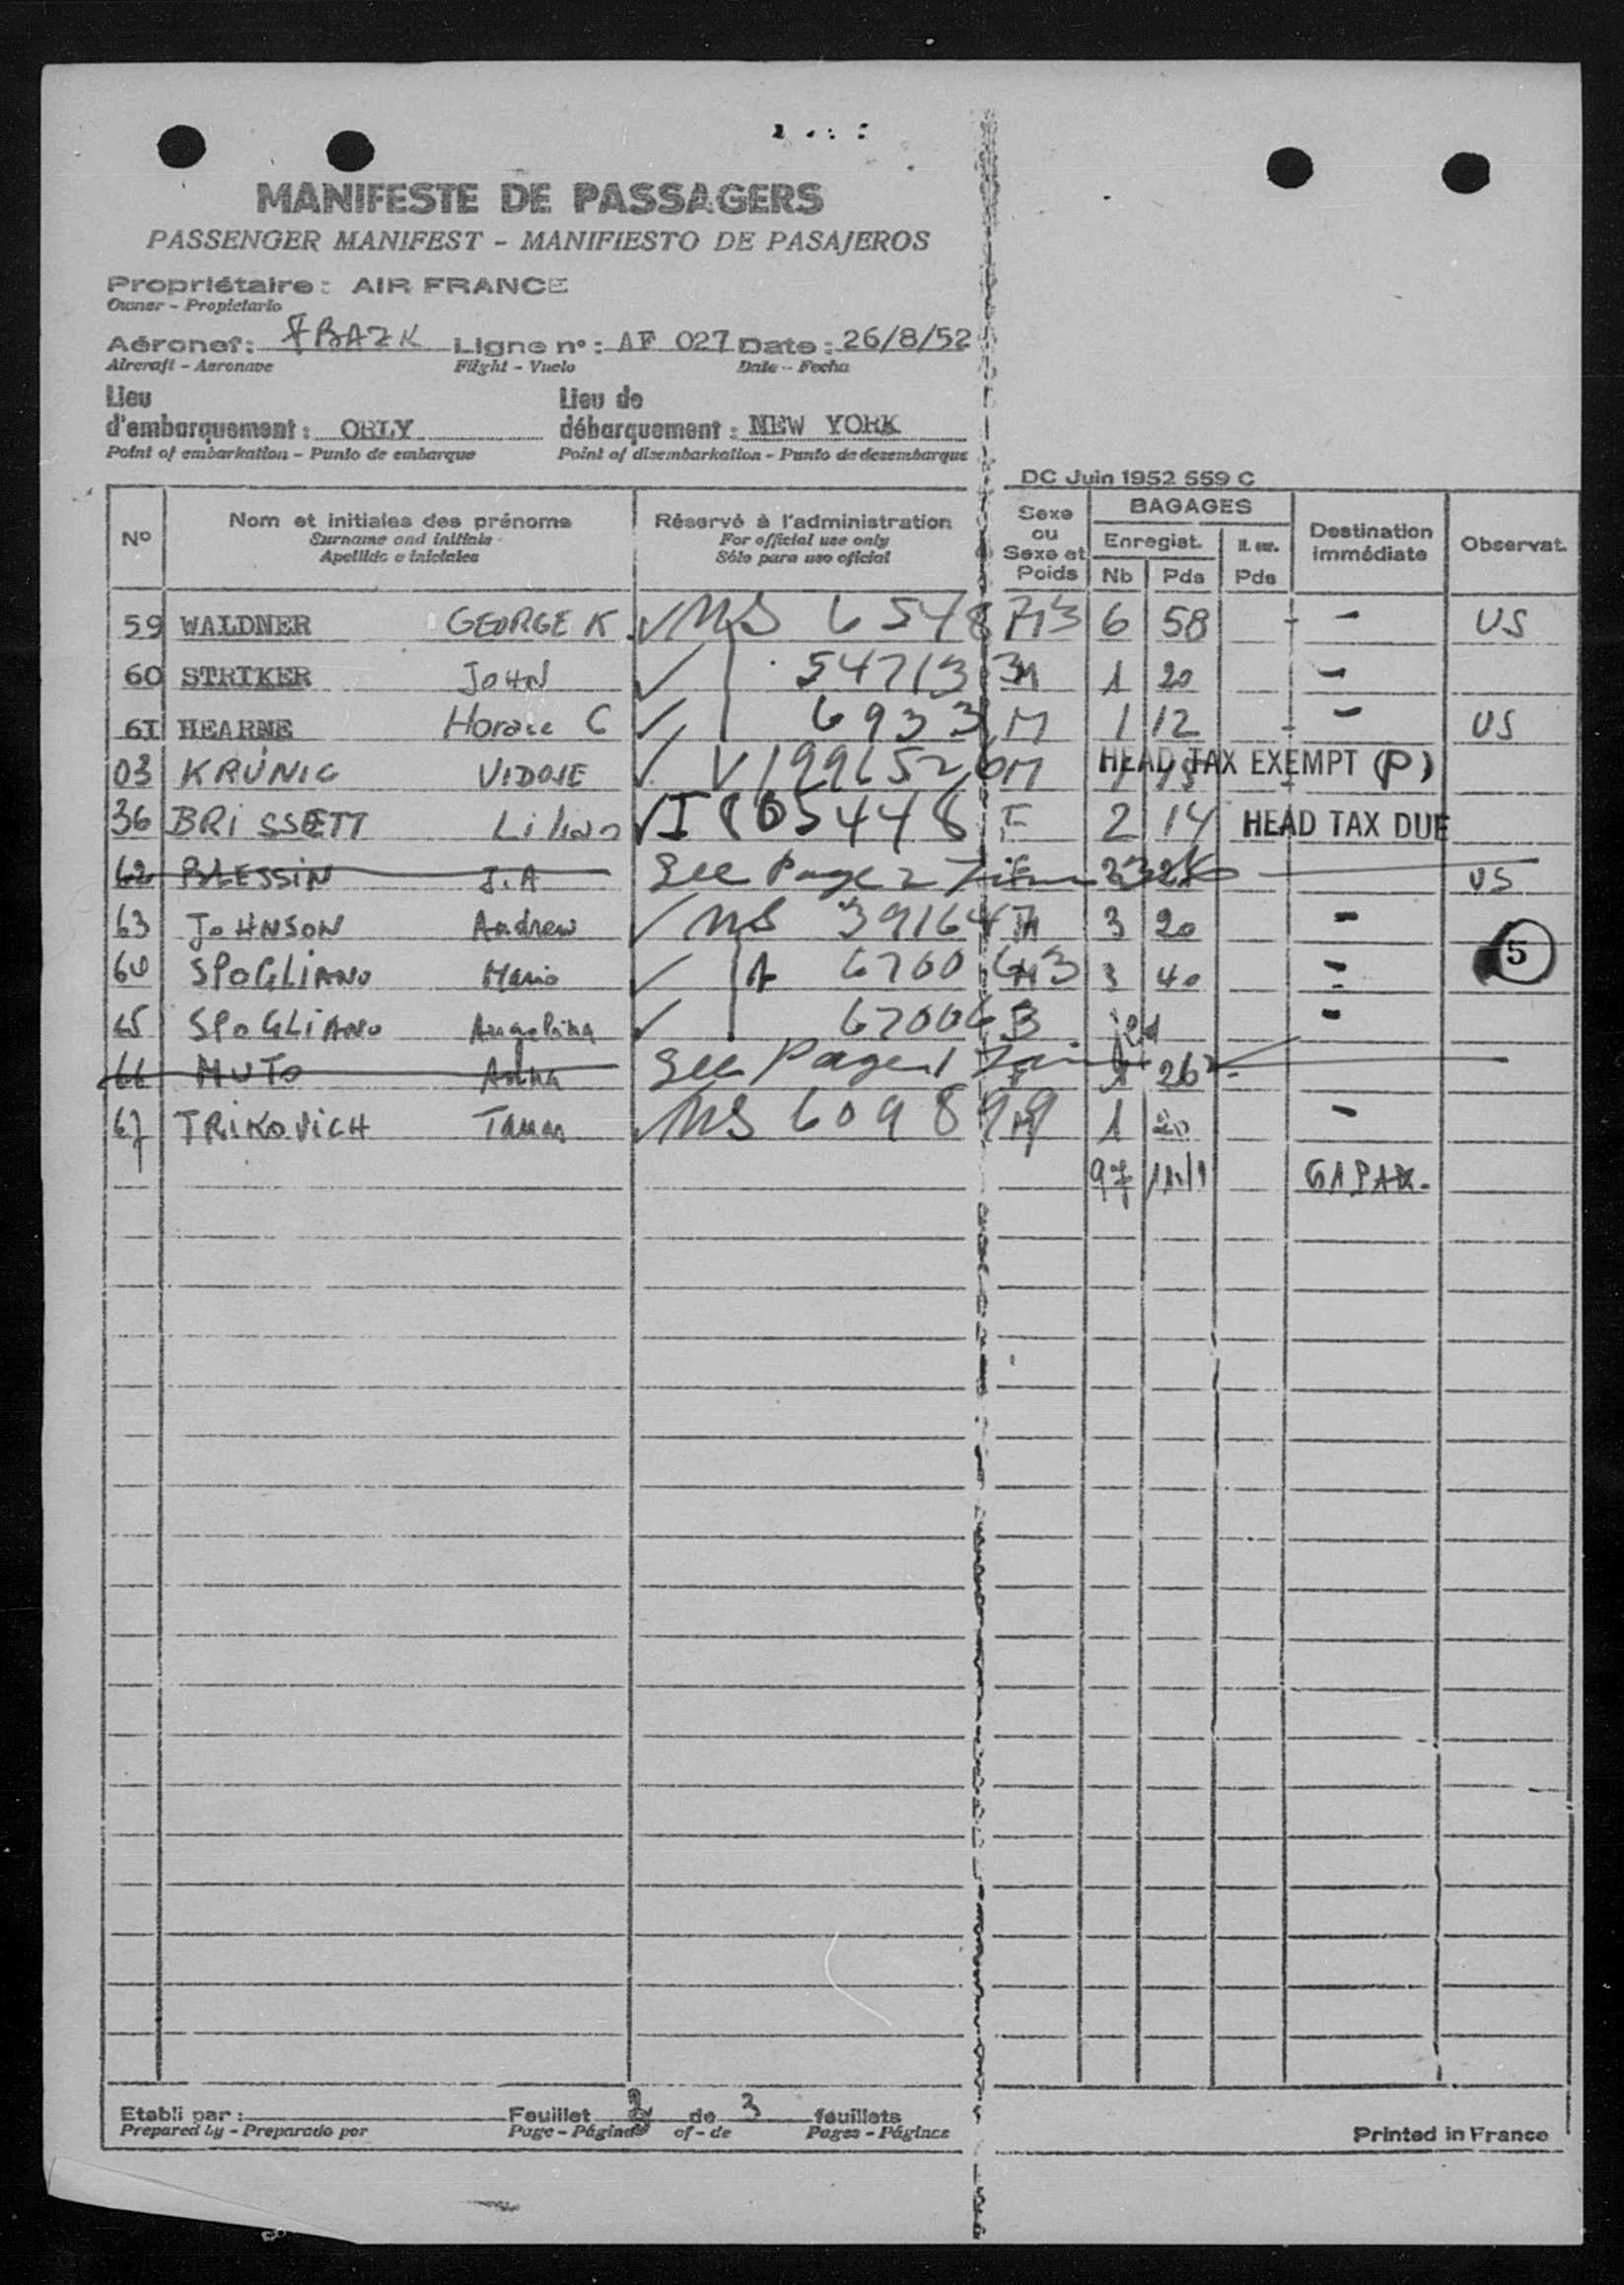 MANIFESTE DE PASSAGERS
PASSENGER MANIFEST - MANIFIESTO DE PASAJEROS
Propriétaire : AIR FRANCE
Owner - Propietario
Aéronef : FBAZK Ligne n° : AF 027 Date : 26/8/52
Aircraft - Aeronave Flight - Vuelo Date - Fecha
Lieu d'embarquement : ORLY Lieu de débarquement : NEW YORK
Point of embarkation - Punto de embarque Point of disembarkation - Punto de desembarque
DC Juin 1952 559 C
Nº Nom et initiales des prénoms Réservé à l'administration Sexe ou Sexe et Poids BAGAGES Destination immédiate Observat.
Surname and initials For official use only Enregist.
Apellido e iniciales Sólo para uso oficial Nb Pds Pds
59 WALDNER GEORGE K ✓ NS 6548 6 58 - US
60 STRIKER JOHN ✓ 547133 M 1 20 -
61 HEARNE Horace C ✓ 6933 M 1 12 - US
03 KRUNIC VIDOJE ✓ V 199652 M HEAD TAX EXEMPT (P)
36 BRISSETT Lilian ✓ I 805448 F 2 14 HEAD TAX DUE
62 BLESSIN J.A See Page 2 US
63 JOHNSON Andrew ✓ NS 39164 3 20 -
64 SPOGLIANO Mario ✓ 6700 3 40 -
5
65 SPOGLIANO Angelina ✓ 670063 -
66 MUTO Anna See Page 1 26
67 TRIKOVICH ✓ NS 609899 1 20 -
97 61 PAX.
Etabli par : Feuillet de 3 feuillets
Prepared by - Preparado por Page - Página of - de Pages - Páginas
Printed in France